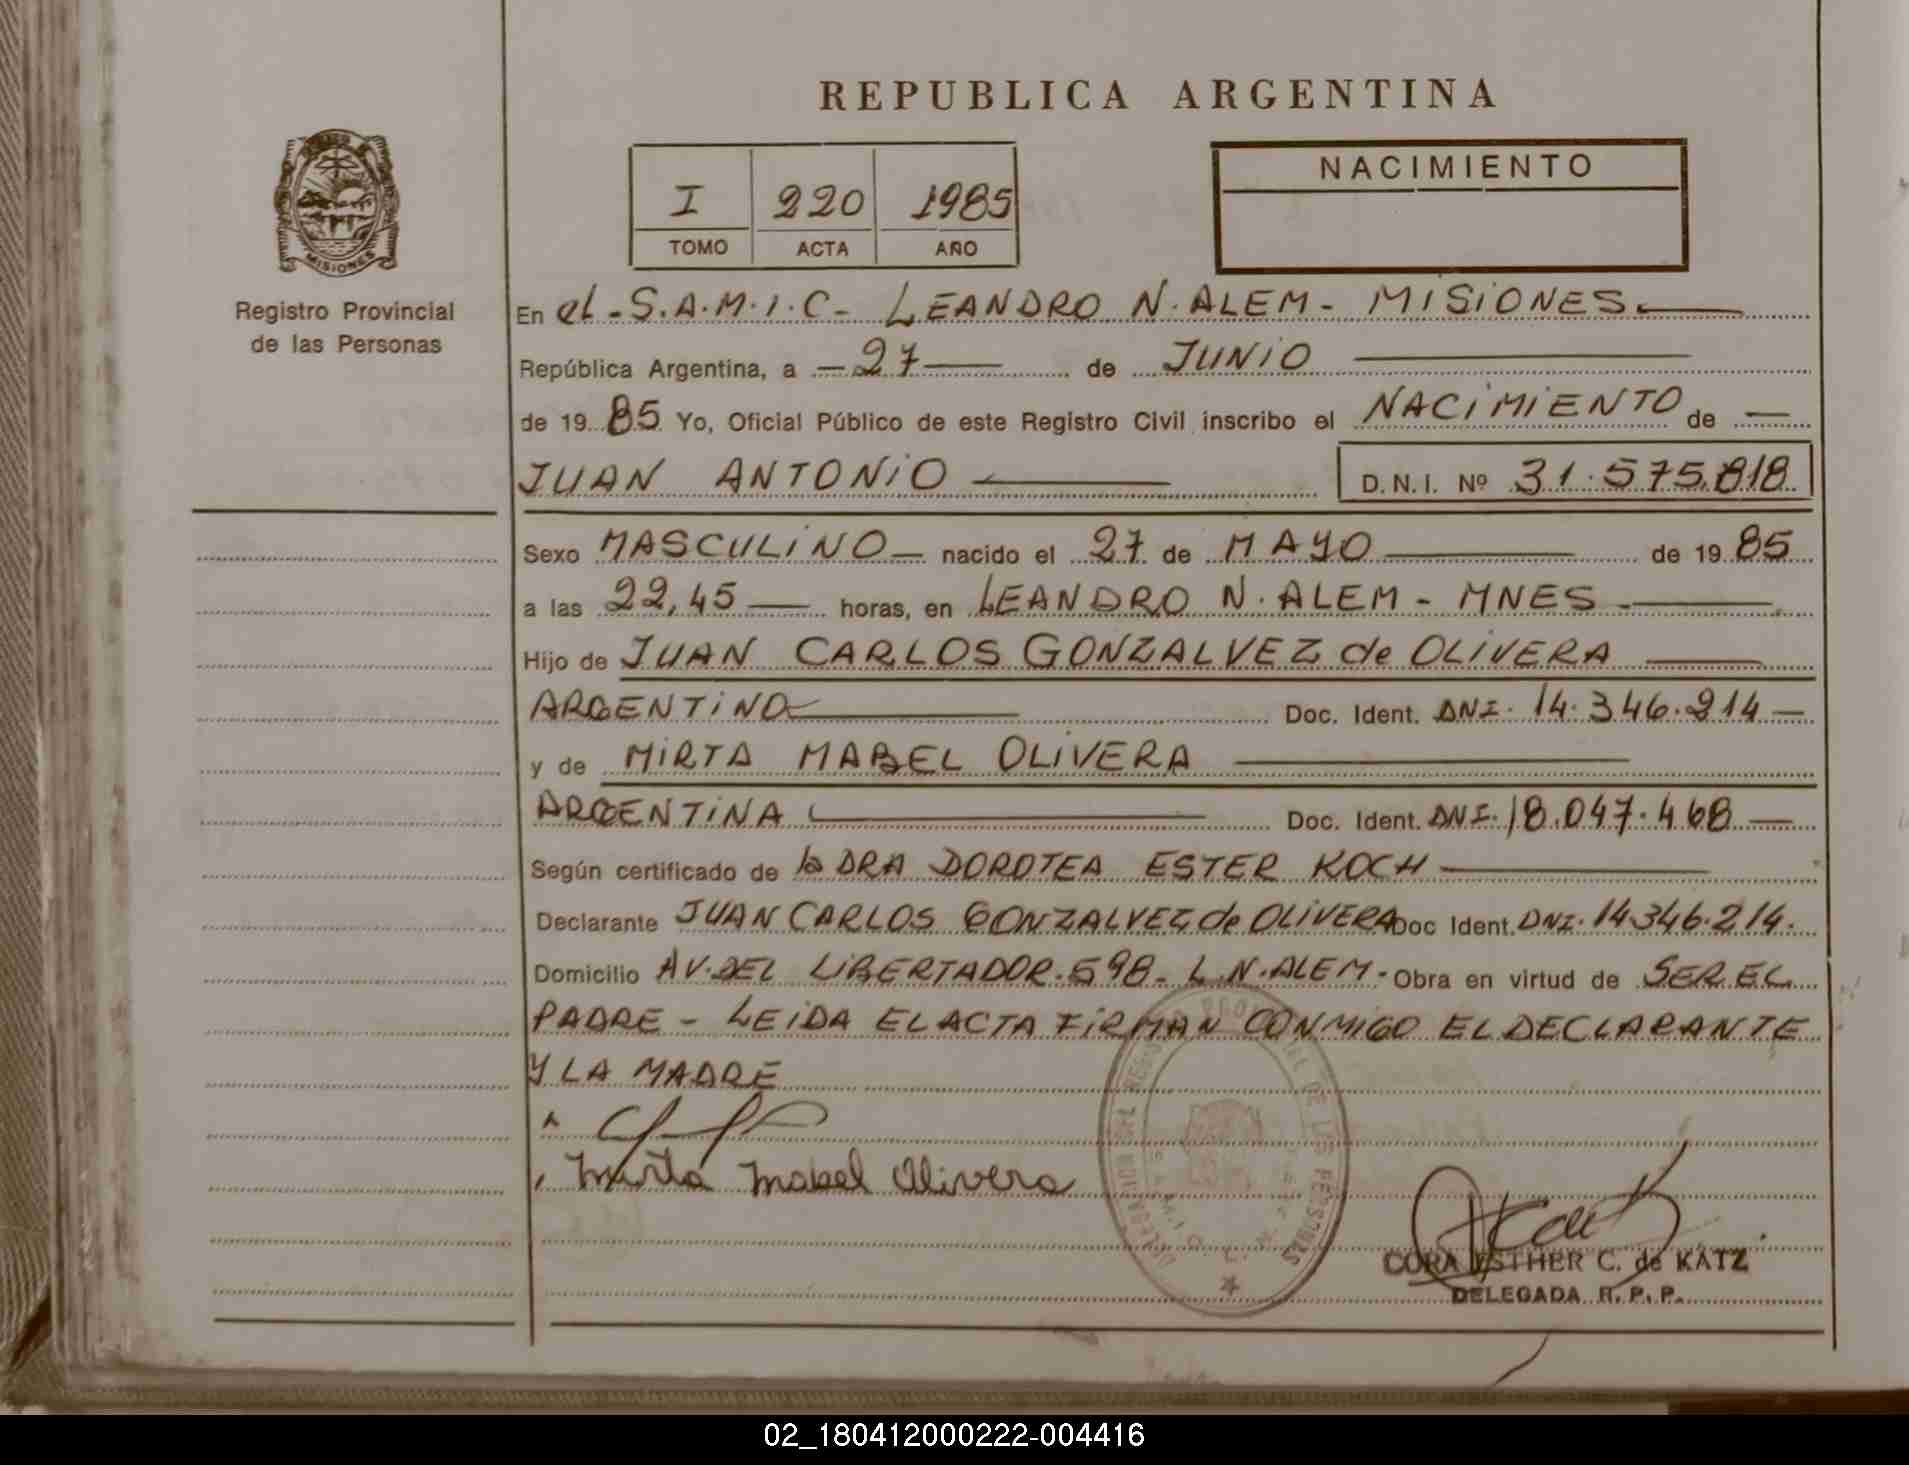 REPUBLICA ARGENTINA
I 220 1985
TOMO ACTA AÑO
NACIMIENTO
MISIONES
Registro Provincial
de las Personas
En el - S.A.M.I.C- LEANDRO N. ALEM - MISIONES
República Argentina, a - 27 de JUNIO
de 19 85 Yo, Oficial Público de este Registro Civil inscribo el NACIMIENTO de
JUAN ANTONIO D.N.I. Nº 31.575.818
Sexo MASCULINO nacido el 27 de MAYO de 19 85
a las 22,45 horas, en LEANDRO N. ALEM - MNES -
Hijo de JUAN CARLOS GONZALVEZ de OLIVERA
ARGENTINO Doc. Ident. DNI. 14.346.214
y de MIRTA MABEL OLIVERA
ARGENTINA Doc. Ident. DNI. 18.047.468
Según certificado de la DRA DOROTEA ESTER KOCH
Declarante JUAN CARLOS GONZALVEZ de OLIVERA Doc Ident. DNI. 14.346.214.
Domicilio AV. DEL LIBERTADOR. 598 - L.N. ALEM. Obra en virtud de SER EL
PADRE - LEIDA EL ACTA FIRMAN CONMIGO EL DECLARANTE
Y LA MADRE
Mirta Mabel Olivera
CORA ESTHER C. de KATZ
DELEGADA R. P. P.
02_180412000222-004416